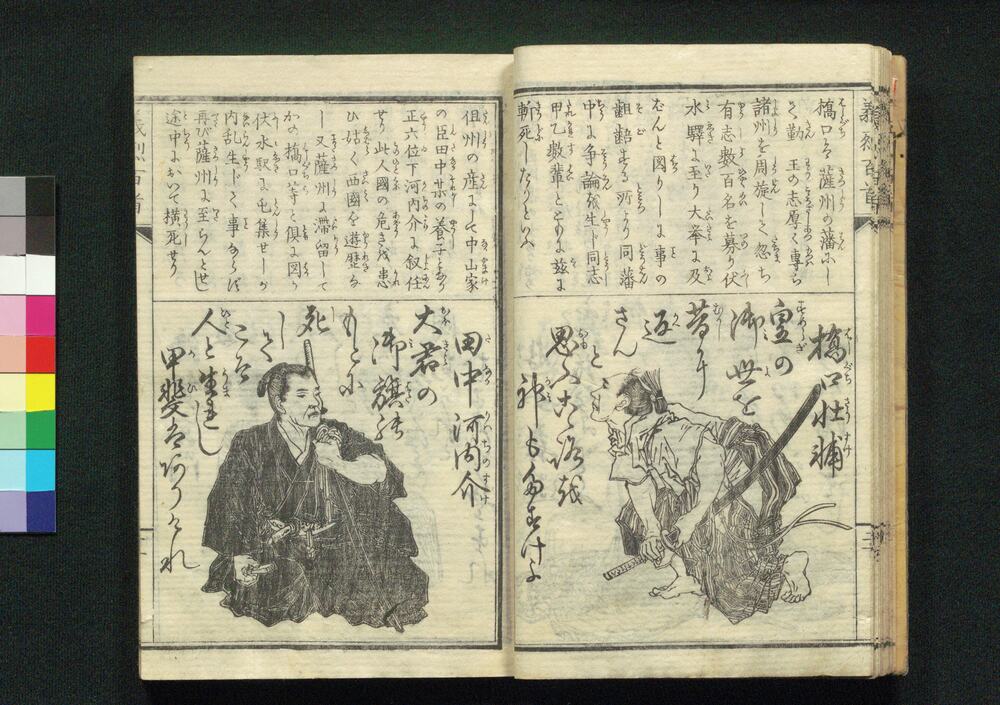 義烈百首
橋口は薩州の藩にし
て勤王の志厚く専ら
諸州を周旋して忽ち
有志数百名を募り伏
水驛に至り大挙に及
ばんと図りしに事の
齟齬する所より同藩
中に争論を生じ同志
甲乙数輩とともに茲に
斬死したりといふ
橋口壮補
皇の
御世を
昔に
返
さん
と
思ふこゝろを
神もたすけよ
但州の産にして中山家
の臣田中某の養子となり
正六位下河内介に叙任
せり此人國の危きを患
ひ姑く西國を遊歴な
し又薩州に滞留して
かの橋口等と倶に図り
伏水駅に屯集せしが
内乱生じて事ならず
再び薩州に至らんとせし
途中において横死せり
田中河内介
大君の
御旗の
もとに
死
して
こそ
人と生れし
甲斐はありけれ
義烈百首